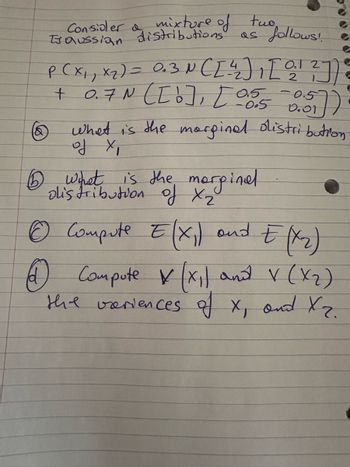 Consider a mixture of two
Gaussian distributions as follows:
P(x₁, x₂) = 0.3 N ([4 -2], [0.1 2 2 1])
+ 0.7 N ([1 0], [0.5 -0.5 -0.5 0.01])
(a) what is the marginal distribution
of x₁
(b) what is the marginal
distribution of x₂
(c) Compute E(x₁) and E(x₂)
(d) Compute V(x₁) and V(x₂)
the variences of x₁ and x₂.